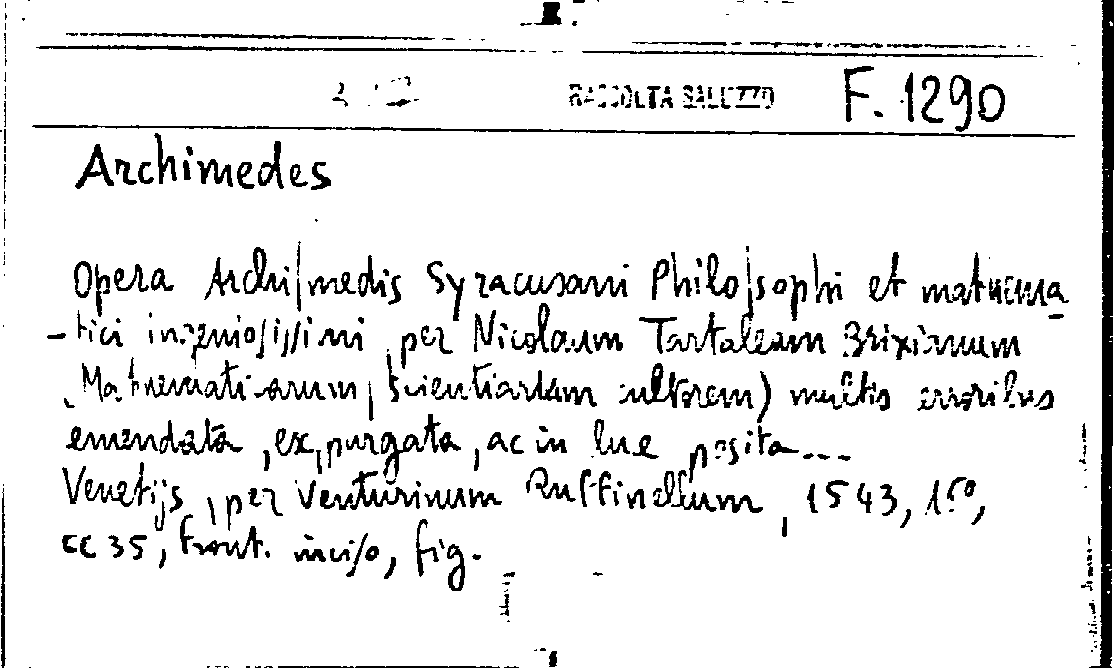 RACCOLTA SALUZZO F. 1290
Archimedes
Opera Archi|medis Syracusani Philo|sophi et mathema
-tici ingenio|issimi, per Nicolaum Tartaleam Brixianum
(Mathematicarum| scientiarum cultorem) multis erroribus
emendata, expurgata, ac in luc posita...
Venetijs, per Venturinum Ruffinellum, 1543,
cc 35, front. inciso, fig.